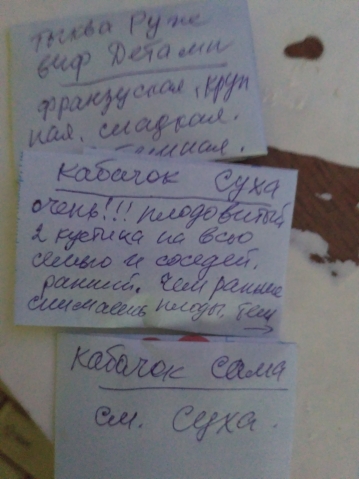 Тыква Руж
виф Детами
французская, круп
ная, сладкая.
Кабачок Суха
очень!!! плодовитый
2 кустика на всю
семью и соседей.
ранний. Чем раньше
снимаешь плоды, тем
Кабачок Сама
см. Суха.